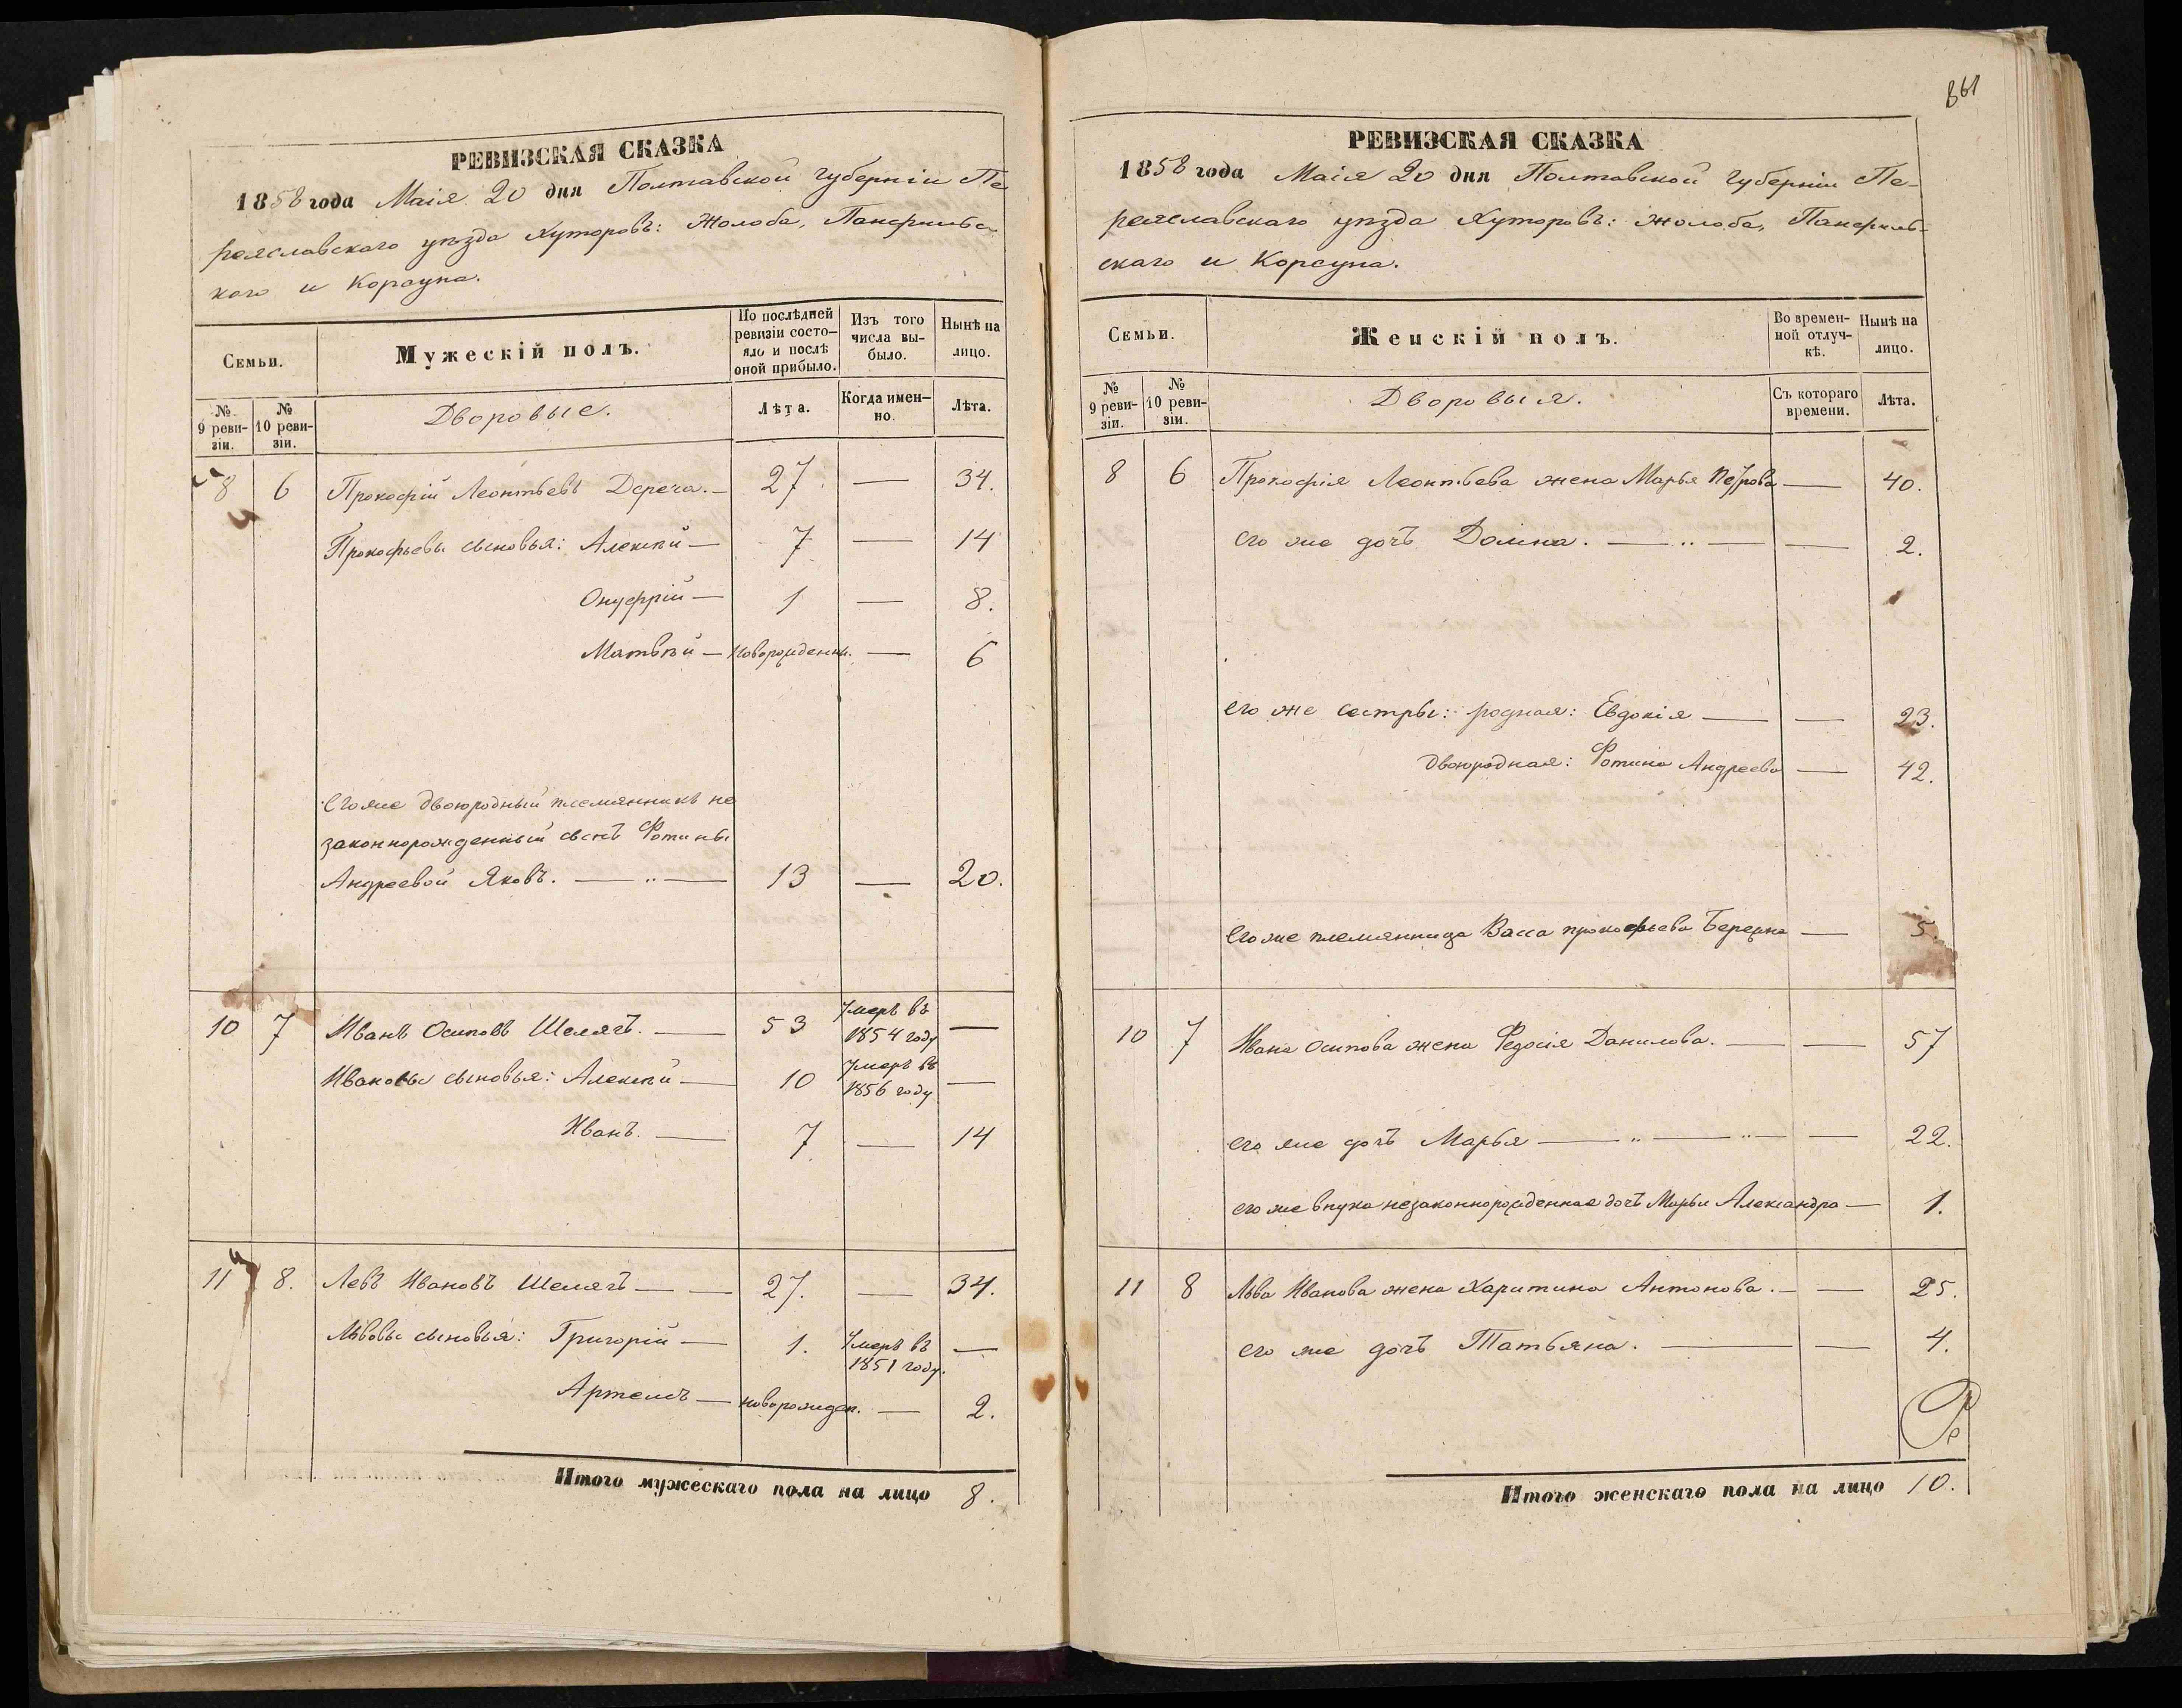 РЕВИЗСКАЯ СКАЗКА
1858 года Маія 20 дня Полтавской губерніи Пе-
реяславскаго уѣзда Хуторовъ: Жолоба,
каго и Корсуна.
Семьи.
Мужескій полъ.
По послѣдней ревизіи состо-
яло и послѣ оной прибыло.
Изъ того числа вы-
было.
Нынѣ на лицо.
№ 9 реви-
зіи.
№ 10 реви-
зіи.
Дворовые.
Лѣта.
Когда имен-
но.
Лѣта.
8 6 Прокофій Леонтьевъ Дереча. — 27 — 34.
Прокофьевы сыновья: Алексѣй — 7 — 14
Онуфрій — 1 — 8.
Матвѣй — новорожденн. — 6
Егоже двоюродный племянникъ не
законнорожденный сынъ Фотины
Андреевой Яковъ. — „ — 13 — 20.
10 7 Иванъ Осиповъ Шелягъ. — 53 Умеръ въ 1854 году —
Ивановы сыновья: Алексѣй — 10 Умеръ въ 1856 году —
Иванъ. — 7 — 14
11 8. Левъ Ивановъ Шелягъ — — 27. — 34.
Львовы сыновья: Григорій — 1. Умеръ въ 1851 году. —
Артемъ — новорожден. — 2.
Итого мужескаго пола на лицо 8.
861
РЕВИЗСКАЯ СКАЗКА
1858 года Маія 20 дня Полтавской губерніи Пе-
реяславскаго уѣзда Хуторовъ: Жолоба,
скаго и Корсуна.
Семьи.
Женскій полъ.
Во времен-
ной отлуч-
кѣ.
Нынѣ на лицо.
№ 9 реви-
зіи.
№ 10 реви-
зіи.
Дворовыя.
Съ котораго времени.
Лѣта.
8 6 Прокофія Леонтьева жена Марья Петрова — 40.
его же дочь Домна. — „ — — 2.
его же сестры: родная: Евдокія — — 23.
двоюродная: Фотина Андреева — 42.
Его же племянница Васса прокофьева — 5.
10 7 Ивана Осипова жена Федосія Данилова. — — 57
его же дочь Марья — „ — „ — — 22.
его же внука незаконнорожденная дочь Марьи Александра — 1.
11 8 Льва Иванова жена Харитина Антонова. — — 25.
его же дочь Татьяна. — — 4.
Итого женскаго пола на лицо 10.